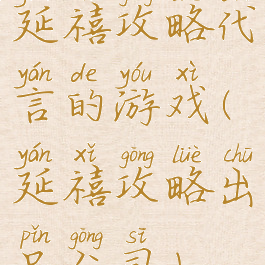 延禧攻略代
yán de yóu xì
言的游戏(
yán xǐ gōng lüè chū
延禧攻略出
pǐn gōng sī
品公司)